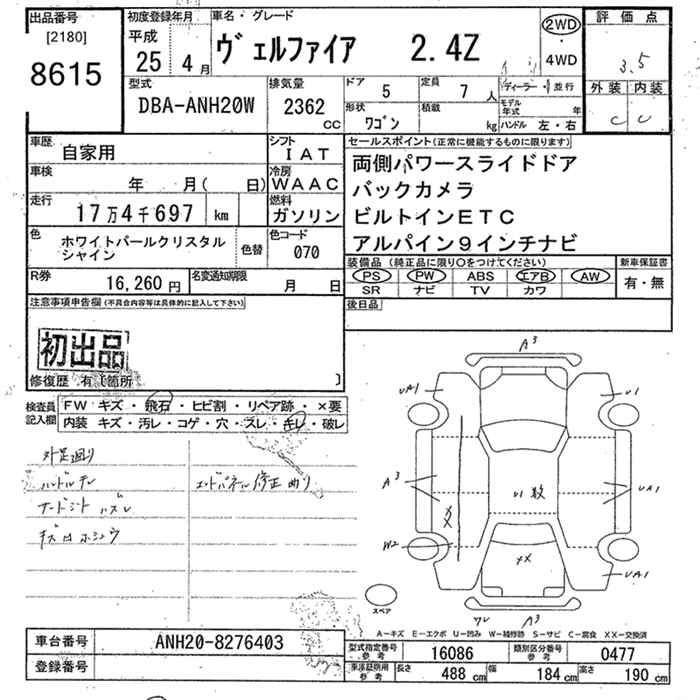 出品番号
[2180]
8615
初度登録年月
平成
25 4月
車名・グレード
ヴェルファイア 2.4Z
2WD
・
4WD
評価点
3.5
外装 内装
C C
型式
DBA-ANH20W
排気量
2362
CC
ドア
5
定員
7 人
形状
ワゴン
積載
kg
ディーラー・並行
モデル年式 年
ハンドル 左・右
車歴
自家用
シフト
IAT
車検
年 月( 日)
冷房
WAAC
走行
17万4千697 km
燃料
ガソリン
色
ホワイトパールクリスタル
シャイン
色替
色コード
070
R券
16,260 円
名変通知期限
月 日
セールスポイント(正常に機能するものに限ります)
両側パワースライドドア
バックカメラ
ビルトインETC
アルパイン9インチナビ
装備品 (純正品に限り○をつけてください)
PS PW ABS エアB AW
SR ナビ TV カワ
新車保証書
有・無
後日品
注意事項申告欄 (不具合内容等は具体的に記入して下さい)
初出品
修復歴 有〔箇所 〕
検査員
記入欄
FW キズ・飛石・ヒビ割・リペア跡・×要
内装 キズ・汚レ・コゲ・穴・スレ・キレ・破レ
外足廻り
ハンドルスレ
エンドパネル修正あり
A3
UA1
U1
A3
UA1
XX
U1数
W2
UA1
A3
スペア
A-キズ E-エクボ U-凹み W-補修跡 S-サビ C-腐食 XX-交換済
車台番号
ANH20-8276403
登録番号
型式指定番号
参考
16086
類別区分番号
参考
0477
車庫証明用
参考
長さ 488 cm 幅 184 cm 高さ 190 cm